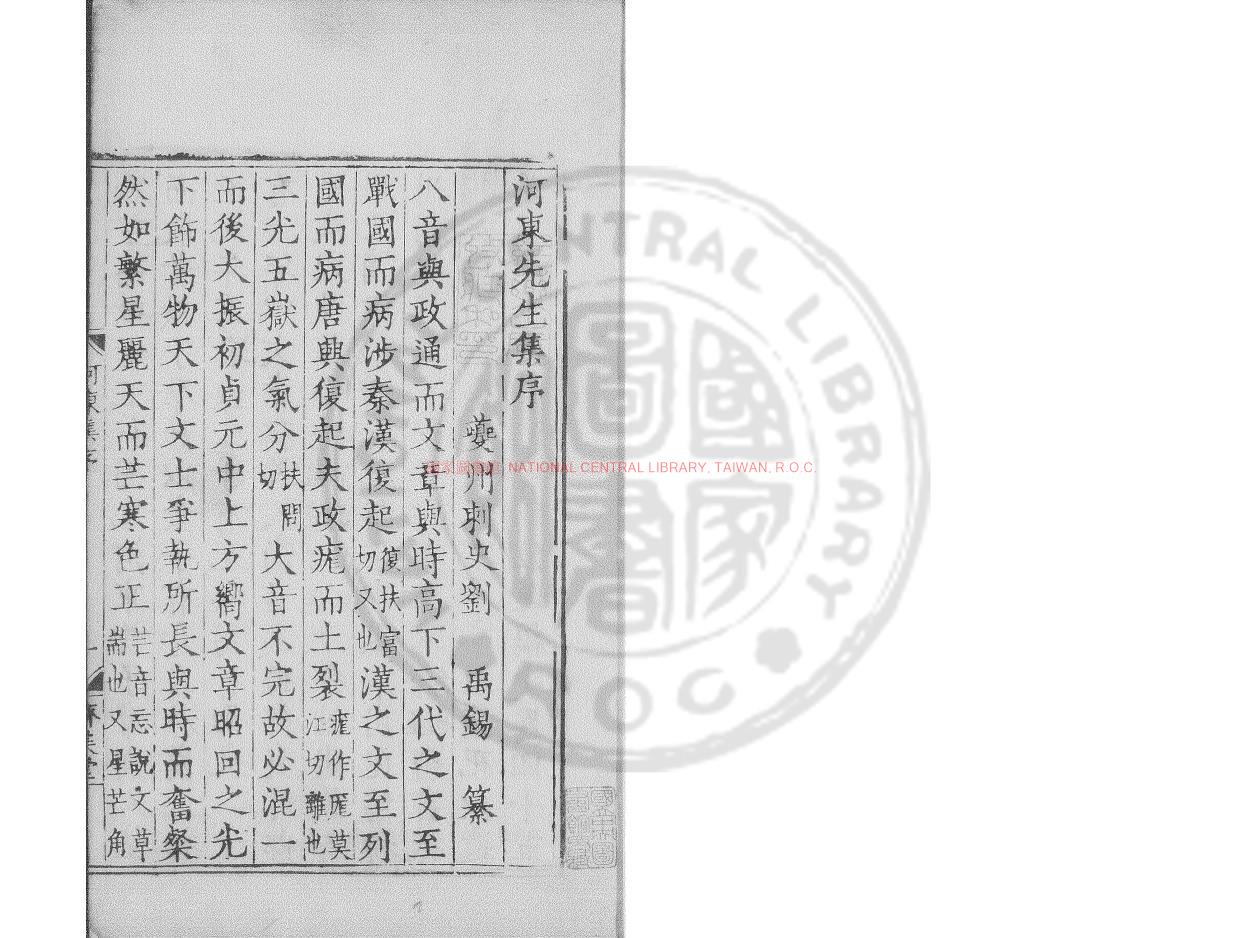 河東先生集序
夔州刺史劉禹錫纂
八音與政通而文章與時高下三代之文至
戰國而病涉秦漢復起復扶富切又也漢之文至列
國而病唐興復起夫政痝而土裂痝作厖莫江切離也
三光五嶽之氣分扶問切大音不完故必混一
而後大振初貞元中上方嚮文章昭回之光
下飾萬物天下文士爭執所長與時而奮粲
然如繁星麗天而芒寒色正芒音忘說文草耑也又星芒角
NATIONAL CENTRAL LIBRARY, TAIWAN, R.O.C.
CENTRAL LIBRARY
ROC
國家圖書